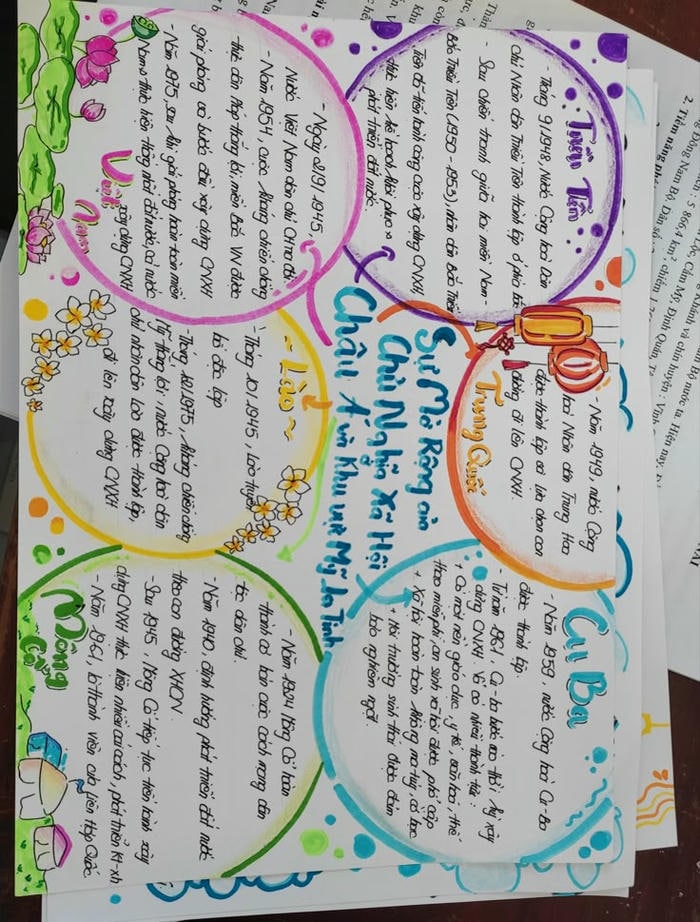 Triều Tiên
- Tháng 9.1948, Nước Cộng hoà Dân
chủ Nhân dân Triều Tiên thành lập ở phía Bắc
- Sau chiến tranh giữa hai miền Nam -
Bắc Triều Tiên (1950 - 1953), nhân dân Bắc Triều
Tiên đã tiến hành công cuộc xây dựng CNXH,
thực hiện kế hoạch khôi phục và
phát triển đất nước.
Trung Quốc
- Năm 1949, nước Cộng
hoà Nhân dân Trung Hoa
được thành lập có lựa chọn con
đường đi lên CNXH.
Cu Ba
- Năm 1959, nước Cộng hoà Cu-Ba
được thành lập
- Từ năm 1961, Cu-ba bước vào thời kỳ xây
dựng CNXH. Và có nhiều thành tựu:
+ Có một nền giáo dục, y tế, văn hoá, thể
thao miễn phí, an sinh xã hội được phổ cập
+ Xã hội hoàn toàn không ma túy, cờ bạc
+ Môi trường sinh thái được đảm
bảo nghiêm ngặt.
Sự Mở Rộng của
Chủ Nghĩa Xã Hội
Châu Á và Khu vực Mỹ la Tinh
Việt Nam
- Ngày 2.9.1945,
Nước Việt Nam dân chủ CH ra đời
- Năm 1954, cuộc kháng chiến chống
thực dân Pháp thắng lợi, miền Bắc VN được
giải phóng và bước đầu xây dựng CNXH
- Năm 1975, sau khi giải phóng hoàn toàn miền
Nam và thực hiện thống nhất đất nước, cả nước
xây dựng CNXH
~ Lào ~
- Tháng 10.1945, Lào tuyên
bố độc lập
- Tháng 12.1975, kháng chiến chống
Mỹ thắng lợi, nước Cộng hoà dân
chủ nhân dân Lào được thành lập,
đi lên xây dựng CNXH
Mông Cổ
- Năm 1924 Mông Cổ hoàn
thành cơ bản cuộc cách mạng dân
tộc dân chủ.
- Năm 1940, định hướng phát triển đất nước
theo con đường XHCN.
- Sau 1945, Mông Cổ tiếp tục tiến hành xây
dựng CNXH thực hiện nhiều cải cách, phát triển kt-xh
- Năm 1961, là thành viên của Liên Hợp Quốc.